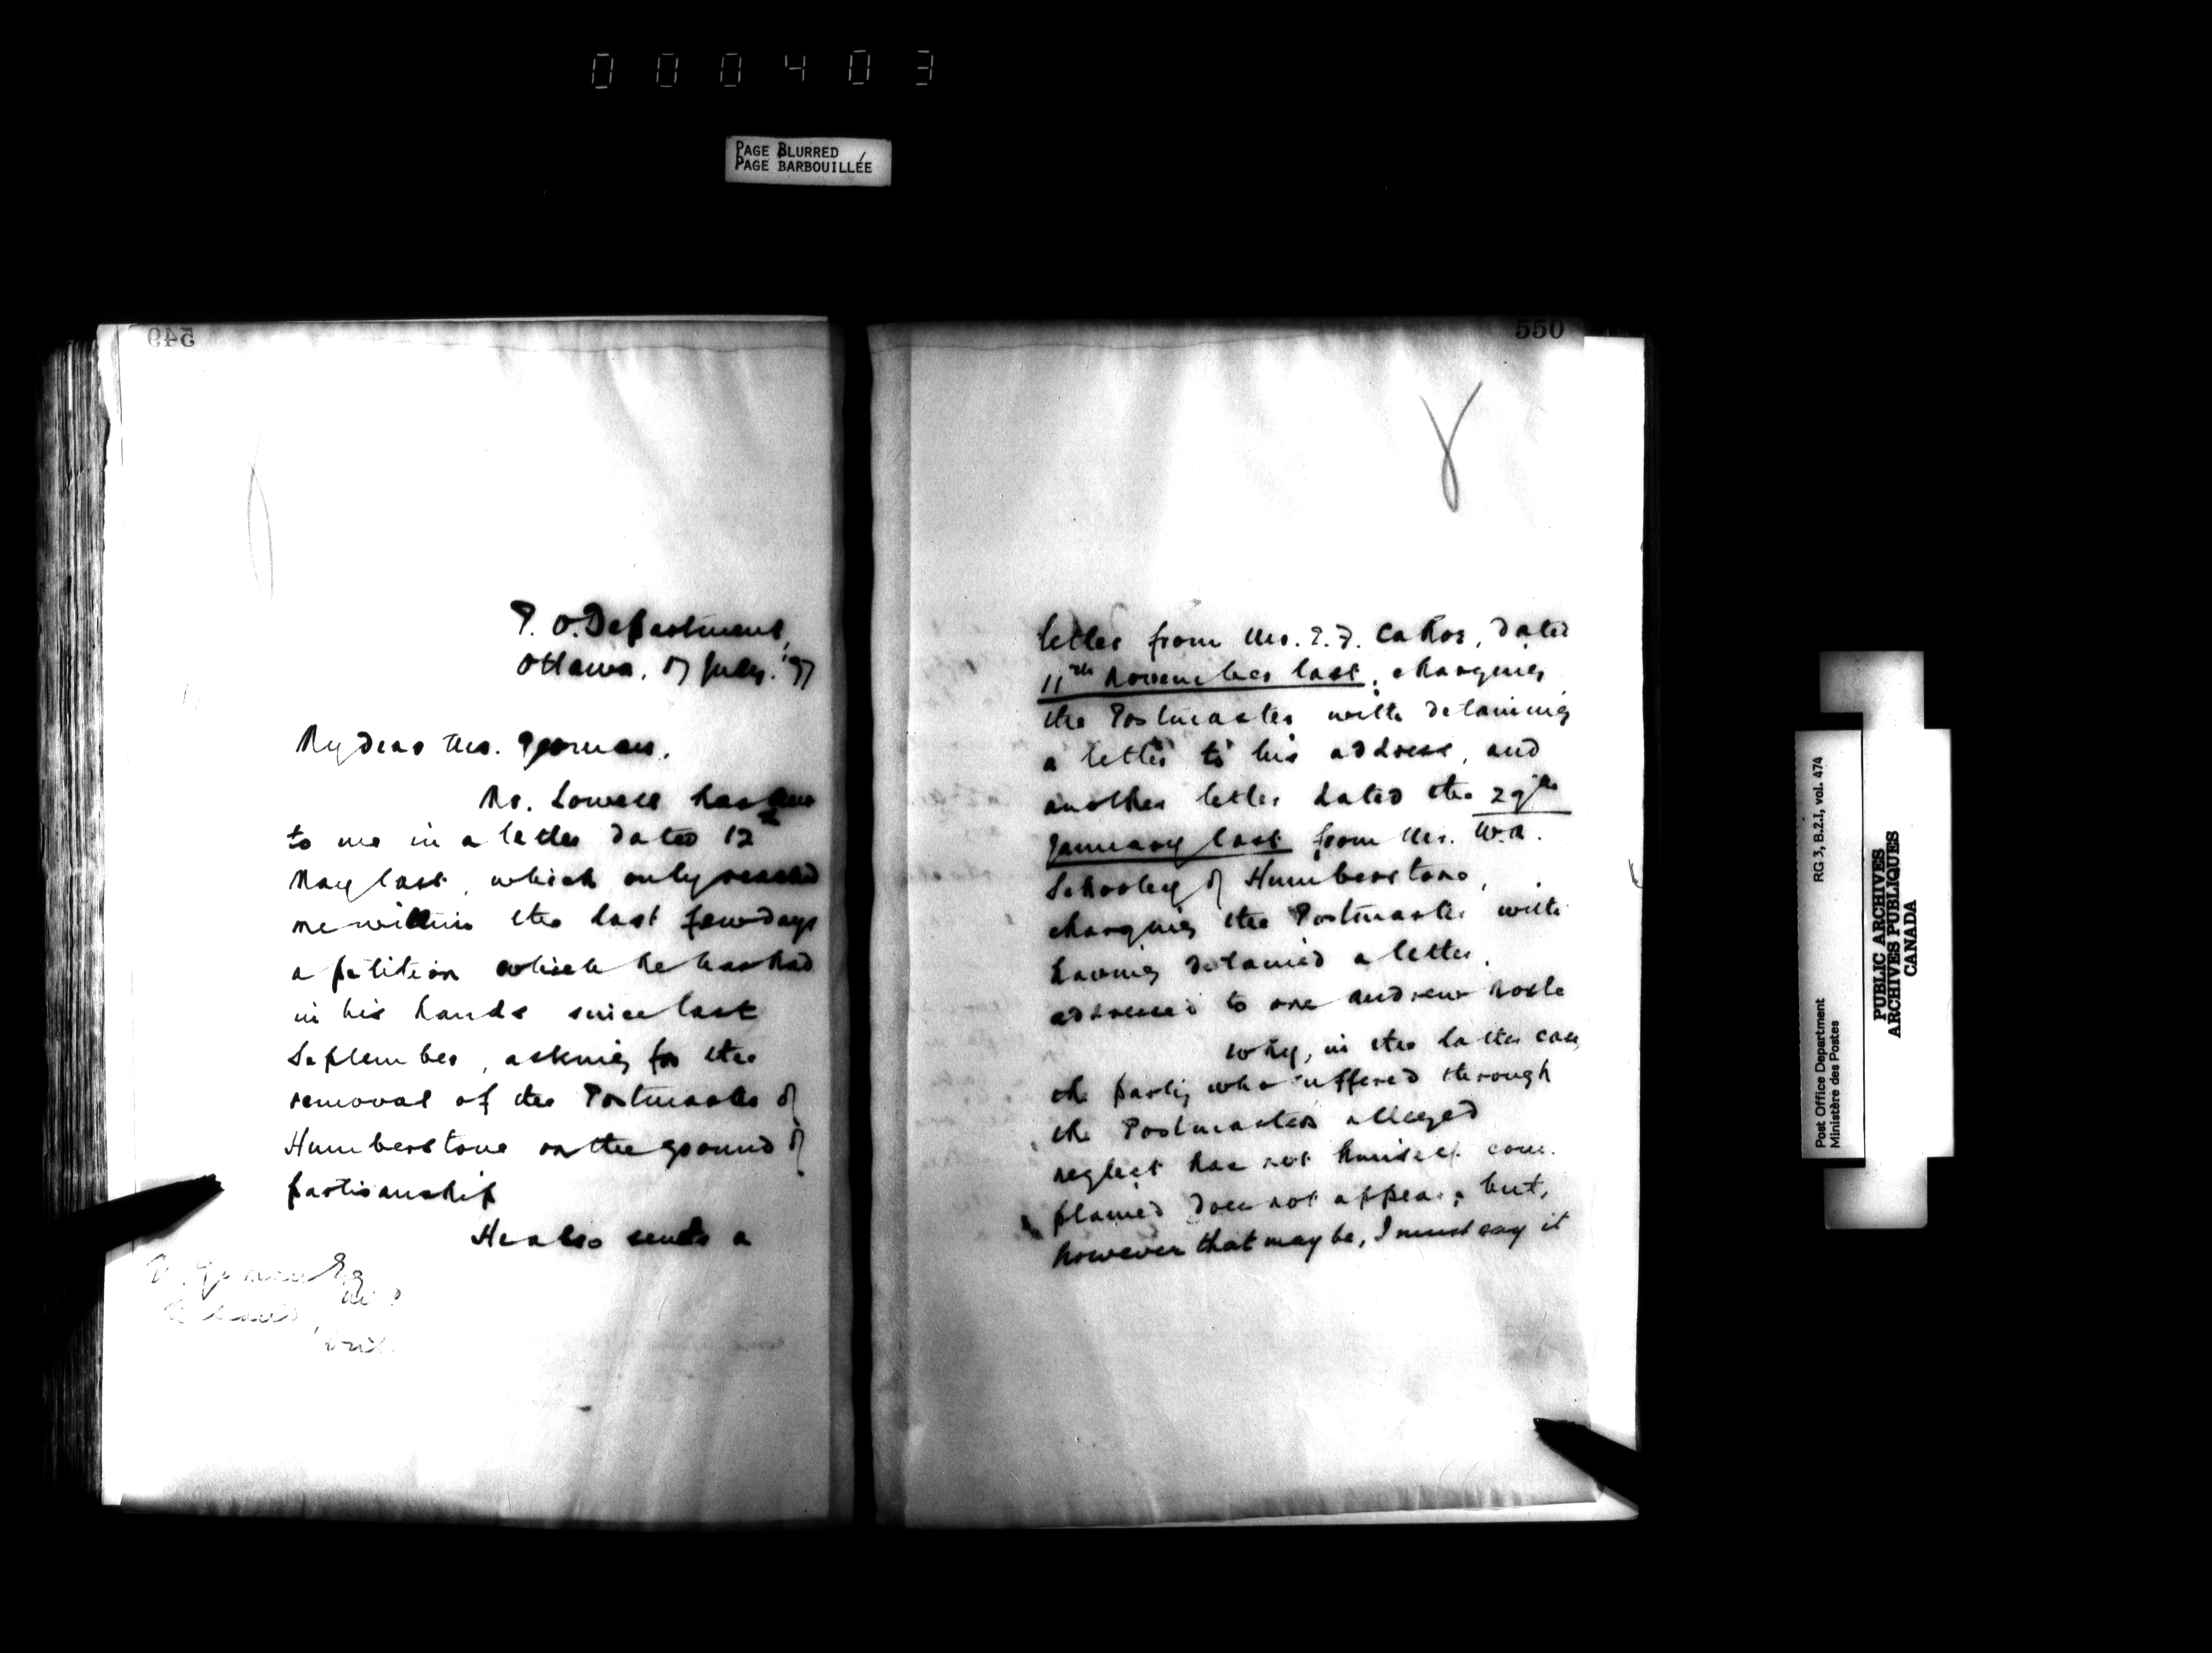 000403
PAGE BLURRED
PAGE BARBOUILLÉE
549
P. O. Department,
Ottawa, 17 July. '97
My dear Mr. German,
Mr. Lowell has
to me in a letter dated 12
May last, which only reached
me within the last few days
a petition which he has had
in his hands since last
September, asking for the
removal of the Postmaster of
Humberstone on the ground of
partisanship
He also sends a
W. German Esq
M.P.
Welland
Ont.
550
letter from Mr. E. F. dated
11th November last, charging
the Postmaster with detaining
a letter to his address, and
another letter dated the 29th
January last from Mr. W.A.
Schooley of Humberstone,
charging the Postmaster with
having detained a letter
addressed to one Andrew
Why, in the latter case,
the party who suffered through
the Postmasters alleged
neglect has not himself com-
plained does not appear; but,
however that may be, I must say it
Post Office Department
Ministère des Postes
RG 3, B.2.I, vol. 474
PUBLIC ARCHIVES
ARCHIVES PUBLIQUES
CANADA